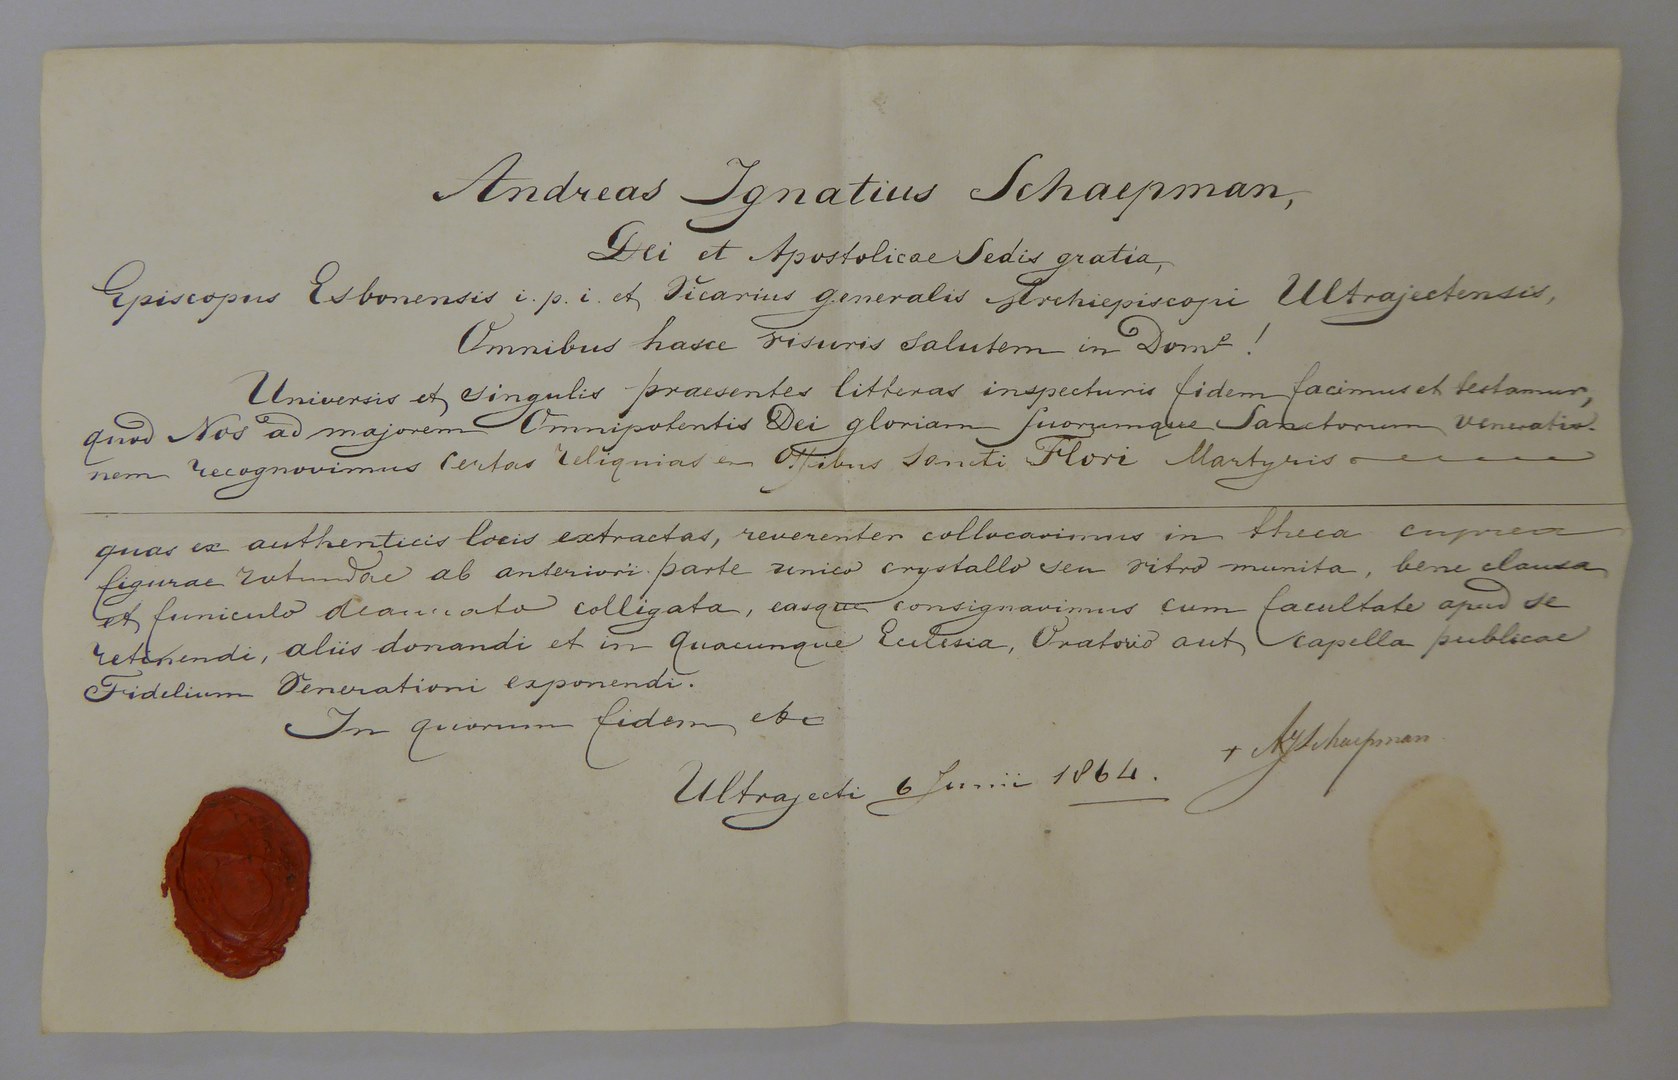 Andreas Ignatius Schaepman,
Dei et Apostolicae Sedis gratia,
Episcopus Esbonensis i. p. i. et Vicarius generalis Archiepiscopi Ultrajectensis,
Omnibus hasce visuris salutem in Domº !
Universis et singulis praesentes litteras inspecturis fidem facimus et testamur,
quod Nos ad majorem Omnipotentis Dei gloriam suorumque Sanctorum veneratio-
nem recognovimus certas reliquias ex Ossibus Sancti Flori Martyris
quas ex authenticis locis extractas, reverenter collocavimus in theca cuprea
figurae rotundae ab anteriori parte unico crystallo seu vitro munita, bene clausa
et funiculo deaurato colligata, easque consignavimus cum facultate apud se
retinendi, aliis donandi et in quacunque Ecclesia, Oratorio aut capella publicae
Fidelium Venerationi exponendi.
In quorum fidem etc
+ AJSchaepman
Ultrajecti 6 Junii 1864.